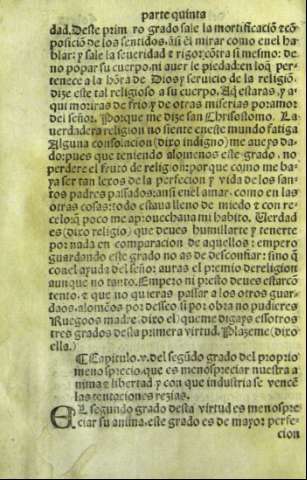 parte quinta
dad. Deste prim ro grado sale la mortificaciõ ⁊ cõ
posiciõ de los sentidos. assi el mirar como en el ha
blar: y sale la seueridad ⁊ rigor cõtra si mesmo: de
no popar su cuerpo ni auer le piedad: en loq̃ per-
tenece a la hõra de Dios y seruicio de la religiõ.
dize este tal religioso a su cuerpo. Aq̃ estaras, y a
qui moriras de frio y de otras miserias por amor
del señor. Porque me dize san Chrisostomo. La
verdadera religion no siente en este mundo fatiga
Alguna consolacion (dixo indigno) me aueys da-
do: pues que teniendo alomenos este grado, no
perdere el fruto de religion: porque como me ha-
ya ser tan lexos dela perfecion y vida de los san-
tos padres passados: assi en el amar, como en las
otras cosas: todo estaua lleno de miedo ⁊ con re-
celo: q̃ poco me aprouechaua mi habito. Uerdad
es (dixo religiõ) que deues humillarte y tenerte
por nada en comparacion de aquellos: empero
guardando este grado no as de desconfiar: sino q̃
con el ayuda del señor: auras el premio de religion
aunque no tanto. Empero ni presto deues estar cõ
tento, ⁊ que no quieras passar a los otros gra-
dos, alomẽos por desseo si por obra no pudieres
Ruegoos madre, dixo el: que me digays essotros
tres grados desta primera virtud. Plazeme (dixo
ella.)
¶ Capitulo. v. del segũdo grado del proprio
menosprecio, que es menospreciar nuestra a
nima ⁊ libertad y con que industria se vence
las tentaciones rezias.
EL segundo grado desta virtud es menospre
ciar su anima. este grado es de mayor perfe-
cion